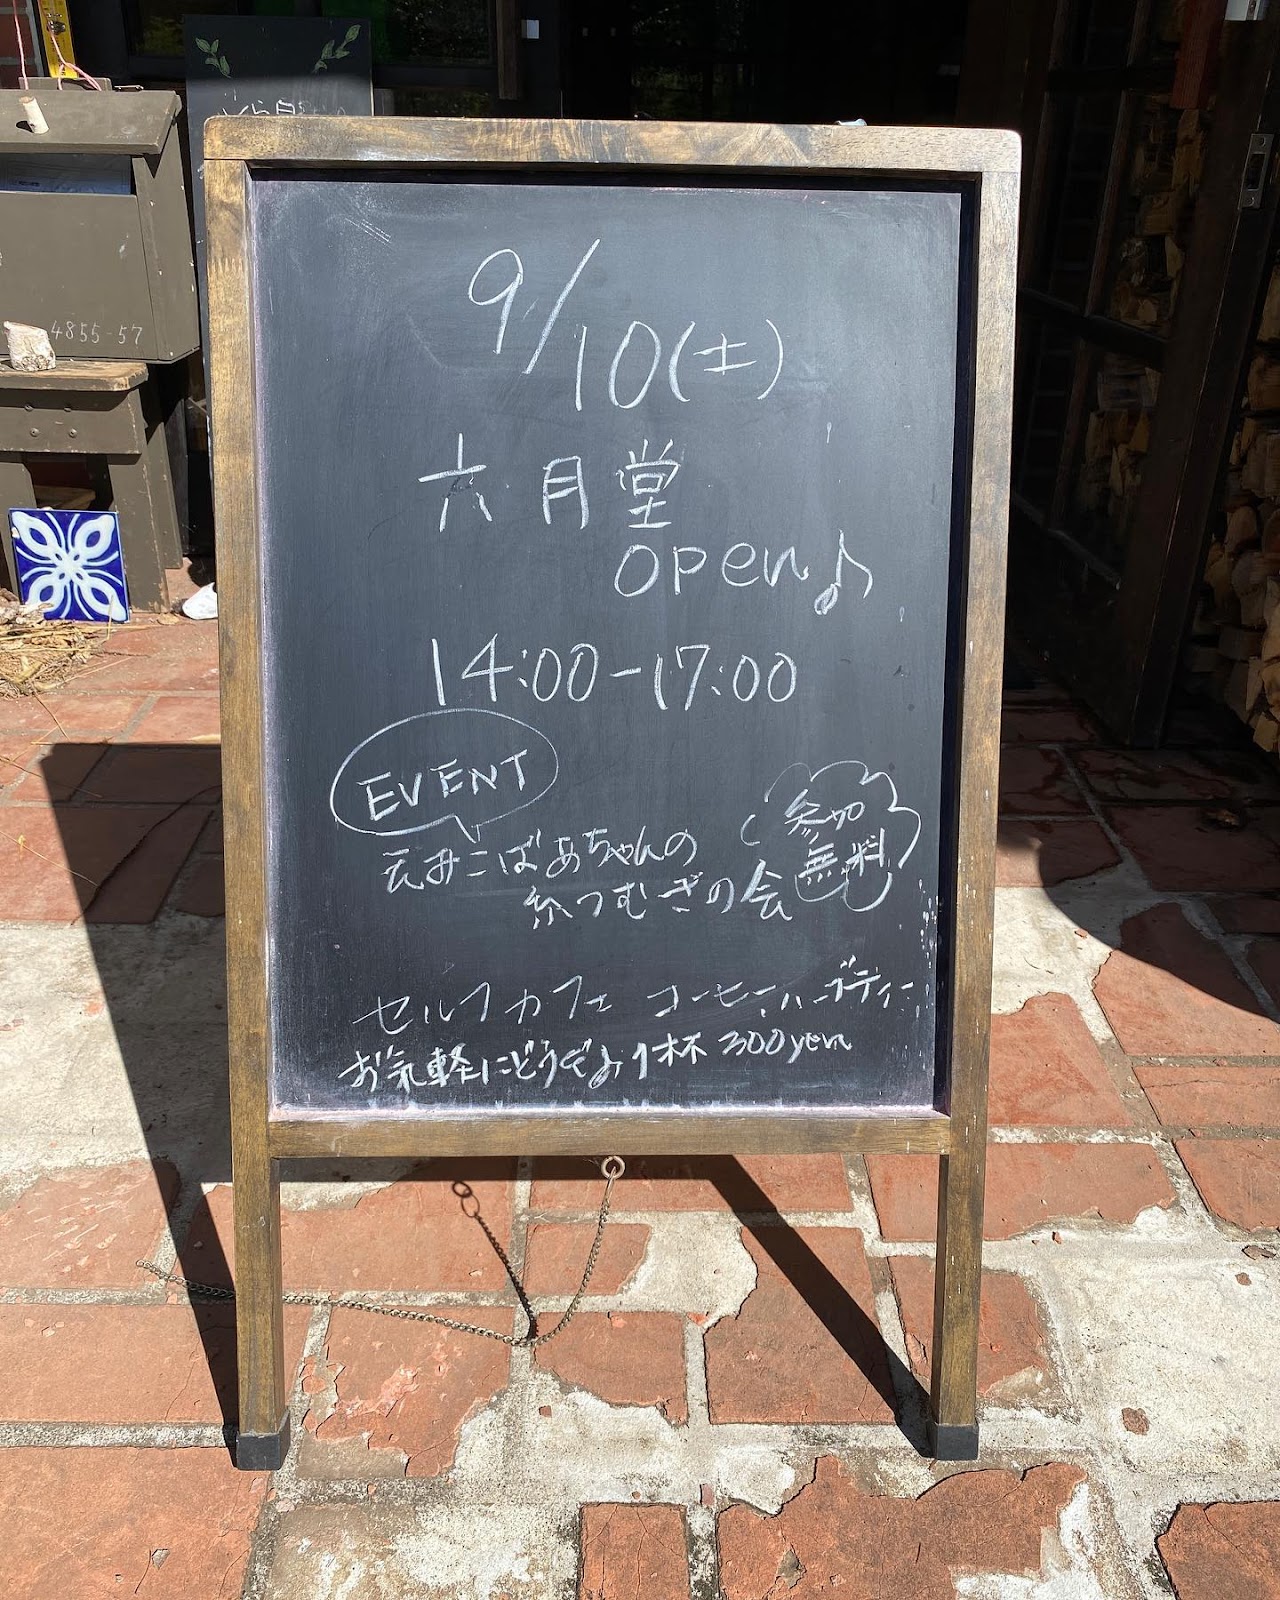 4855-57
9/10(土)
六月堂
open♪
14:00-17:00
EVENT
えみこばあちゃんの
糸つむぎの会
参加
無料
セルフカフェ コーヒー、ハーブティー
お気軽にどうぞ♪ 1杯 300yen